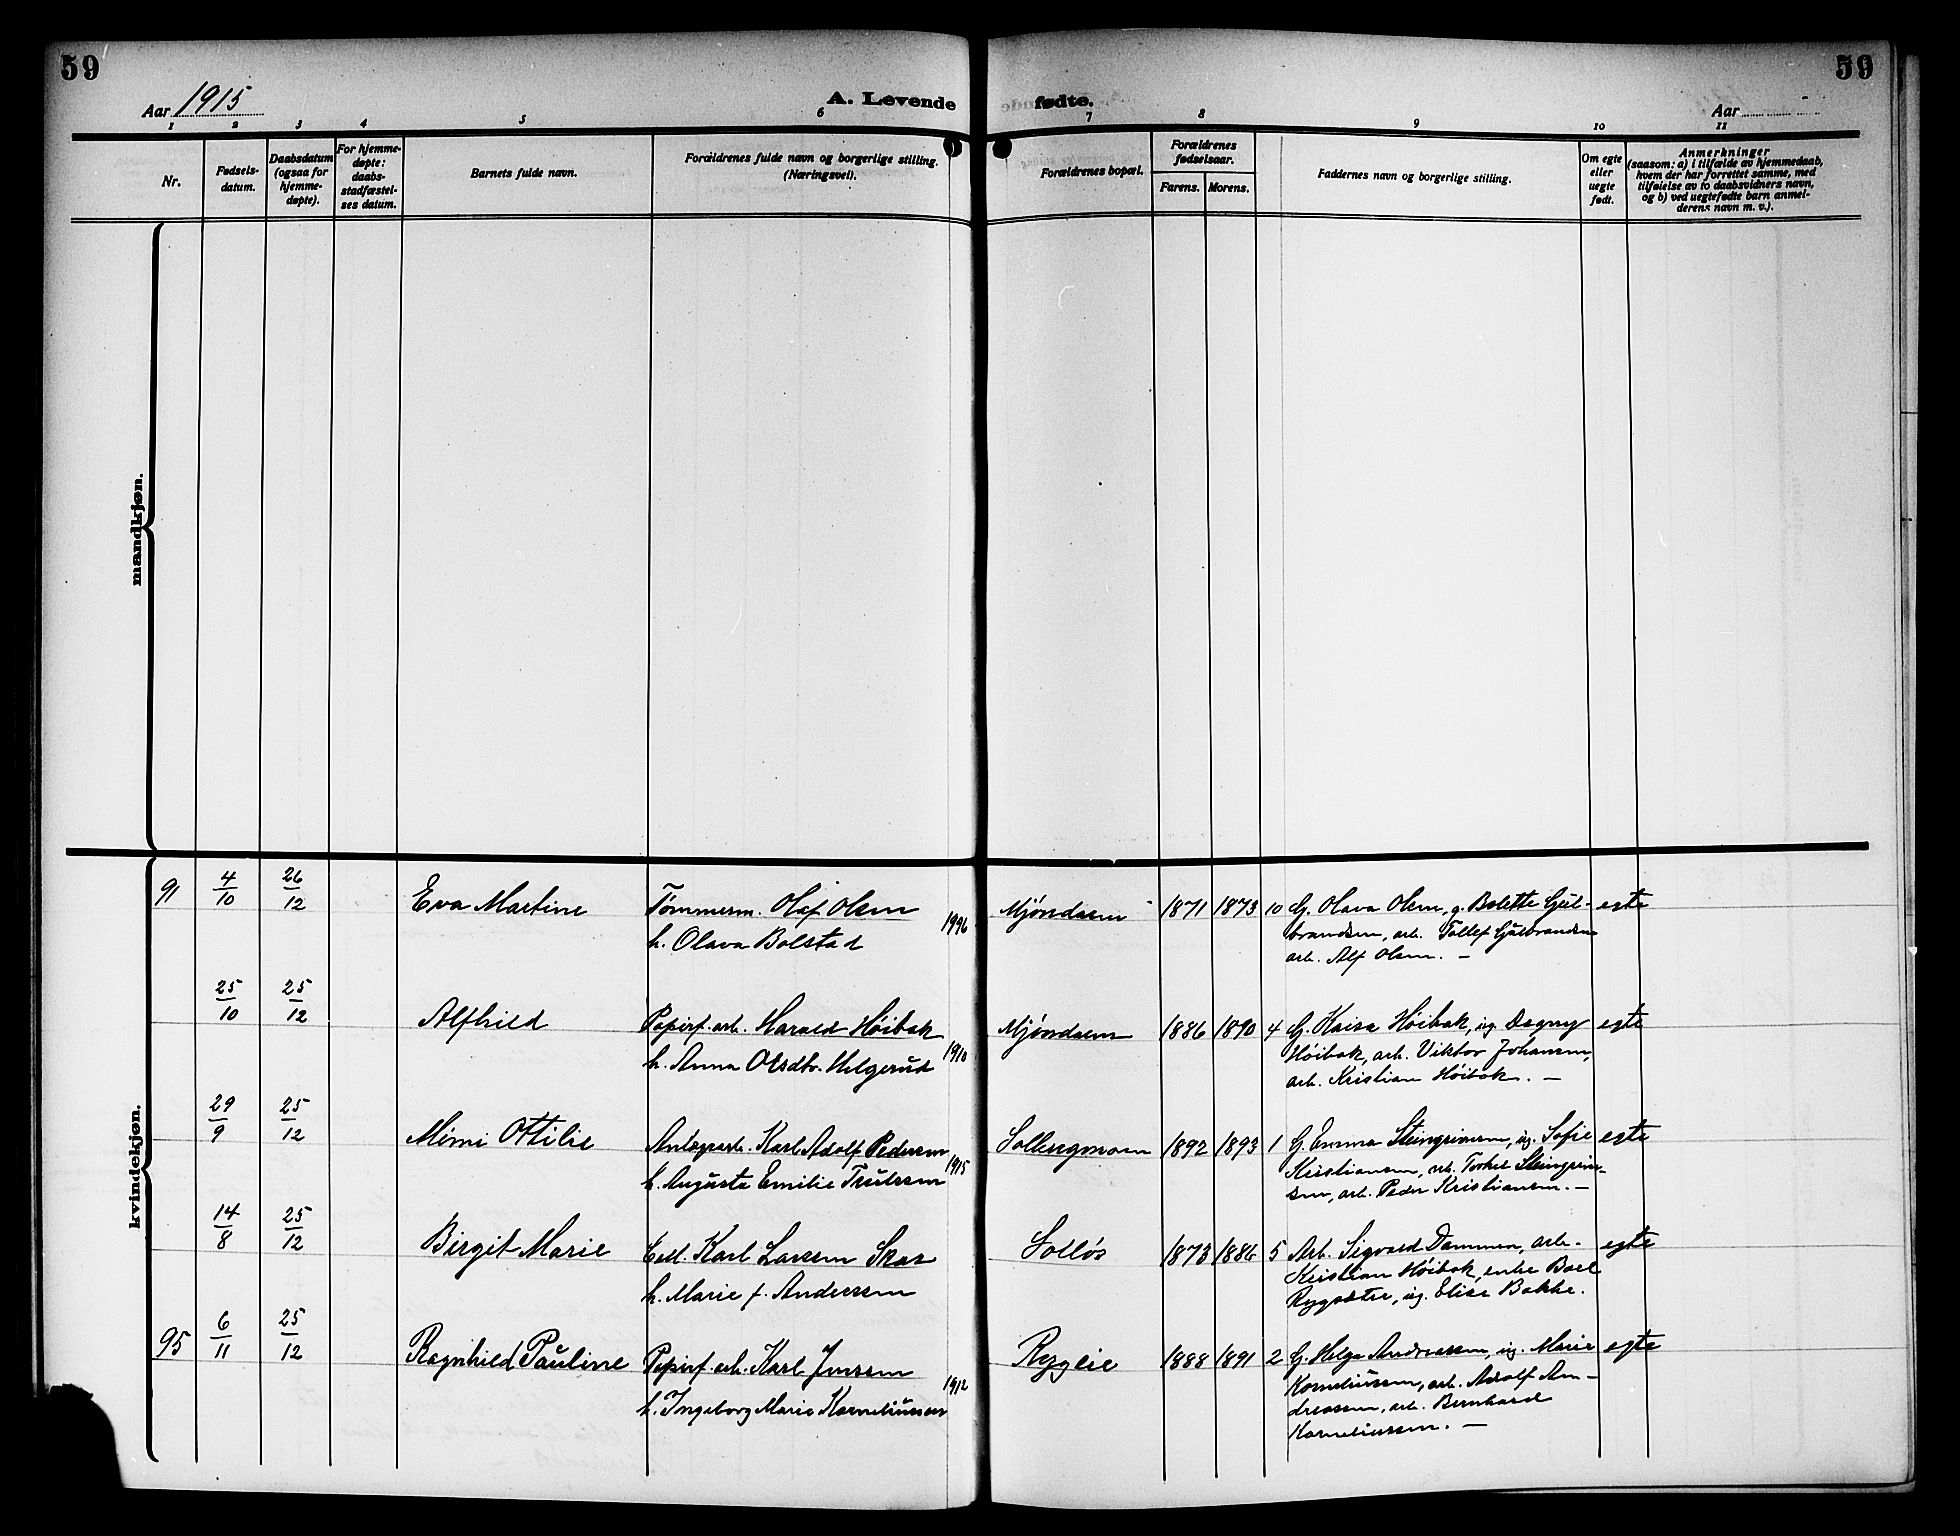 59
59
Aar 1915
A. Levende
fødte.
Aar
1
2
3
4
5
6
7
8
9
10
11
Nr.
Fødsels-
datum.
Daabsdatum
(ogsaa for
hjemme-
døpte).
For hjemme-
døpte:
daabs-
stadfæstel-
ses datum.
Barnets fulde navn.
Forældrenes fulde navn og borgerlige stilling.
(Næringsvei).
Forældrenes bopæl.
Forældrenes
fødselsaar.
Farens.
Morens.
Faddernes navn og borgerlige stilling.
Om egte
eller
uegte
født.
Anmerkninger
(saasom: a) i tilfælde av hjemmedaab,
hvem der har forrettet samme, med
tilføielse av to daabsvidners navn,
og b) ved uegtefødte barn anmel-
derens navn m. v.).
mandkjøn.
kvindekjøn.
91 4/10 26/12 Eva Martine Tømmerm. Olaf Olsen Mjøndalen 1871 1873 10 G. Olava Olsen, g. Bolette Gul- egte
h. Olava Bolstad 1996 brandsen, arb. Tollef Gulbrandsen
arb. Alf Olsen. —
25/10 25/12 Alfhild Papirf. arb. Harald Høibak Mjøndalen 1886 1890 4 G. Kaisa Høibak, ug. Dagny egte
h. Anna Olsdtr. Helgerud 1910 Høibak, arb. Viktor Johansen,
arb. Kristian Høibak. —
29/9 25/12 Mimi Ottilie Karl Adolf Pedersen 1892 1893 1 G. Emma Steingrimsen, ug. Sofie egte
h. Augusta Emilie Trulssen 1915 Kristiansen, arb. Torkel Steingrim-
sen, arb. Peder Kristiansen. —
14/8 25/12 Birgit Marie Karl Larsen Skar Solløs 1873 1886 5 Arb. Sigvard Dammen, arb. egte
h. Marie f. Anderssen Kristian Høibak, enke Boel
Rygsætre, ug. Elise Bakke.
95 6/11 25/12 Ragnhild Pauline Papirf. arb. Karl Jenssen Rygeie 1888 1891 2 G. Helga Andreassen, ug. Marie egte
h. Ingeborg Marie Korneliussen 1912 Korneliussen, arb. Adolf An-
dreassen, arb. Bernhard
Korneliussen. —